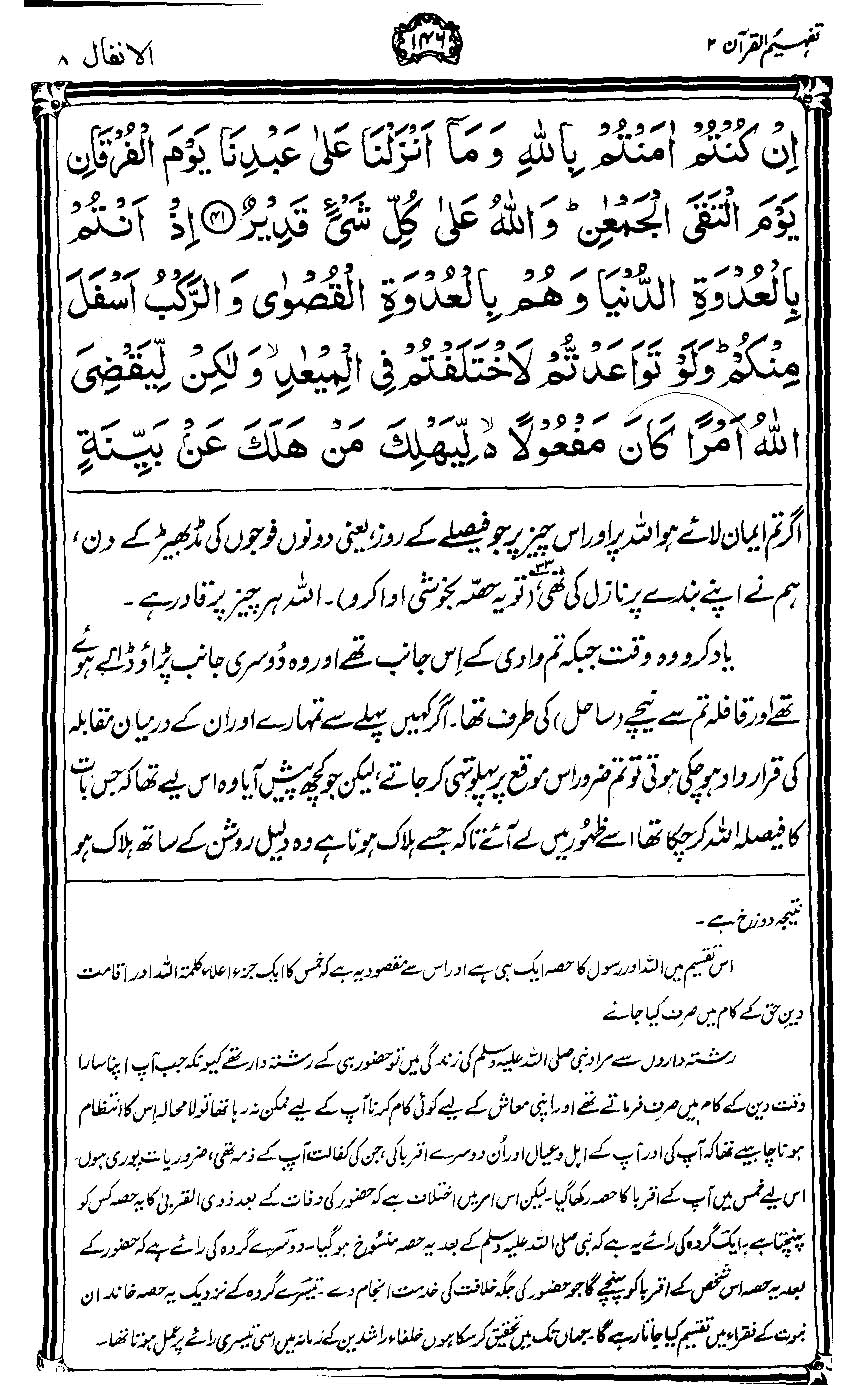 تفہیم القرآن ۲
۱۴۶
الانفال ۸
اِنْ كُنْتُمْ اٰمَنْتُمْ بِاللّٰهِ وَ مَاۤ اَنْزَلْنَا عَلٰى عَبْدِنَا يَوْمَ الْفُرْقَانِ
يَوْمَ الْتَقَى الْجَمْعٰنِ ؕ وَ اللّٰهُ عَلٰى كُلِّ شَیْءٍ قَدِيْرٌ ﴿۴۱﴾ اِذْ اَنْتُمْ
بِالْعُدْوَةِ الدُّنْيَا وَ هُمْ بِالْعُدْوَةِ الْقُصْوٰى وَ الرَّكْبُ اَسْفَلَ
مِنْكُمْ ؕ وَلَوْ تَوَاعَدْتُّمْ لَاخْتَلَفْتُمْ فِى الْمِيْعٰدِ ۙ وَلٰكِنْ لِّيَقْضِىَ
اللّٰهُ اَمْرًا كَانَ مَفْعُوْلًا ۙ۬ لِّيَهْلِكَ مَنْ هَلَكَ عَنْۢ بَيِّنَةٍ
اگر تم ایمان لائے ہو اللہ پر اور اس چیز پر جو فیصلے کے روز، یعنی دونوں فوجوں کی مڈبھیڑ کے دن،
ہم نے اپنے بندے پر نازل کی تھی،۳۳ (تو یہ حصّہ بخوشی ادا کرو)۔ اللہ ہر چیز پر قادر ہے۔
یاد کرو وہ وقت جبکہ تم وادی کے اِس جانب تھے اور وہ دُوسری جانب پڑاؤ ڈالے ہوئے
تھے اور قافلہ تم سے نیچے (ساحل) کی طرف تھا۔ اگر کہیں پہلے سے تمہارے اور ان کے درمیان مقابلہ
کی قرارداد ہو چکی ہوتی تو تم ضرور اس موقع پر پہلو تہی کر جاتے، لیکن جو کچھ پیش آیا وہ اس لیے تھا کہ جس بات
کا فیصلہ اللہ کر چکا تھا اسے ظہور میں لے آئے تاکہ جسے ہلاک ہونا ہے وہ دلیل روشن کے ساتھ ہلاک ہو
نتیجہ دوزخ ہے۔
اس تقسیم میں اللہ اور رسول کا حصہ ایک ہی ہے اور اس سے مقصود یہ ہے کہ خمس کا ایک جزء اعلاء کلمۃ اللہ اور اقامت
دین حق کے کام میں صرف کیا جائے
رشتہ داروں سے مراد نبی صلی اللہ علیہ وسلم کی زندگی میں تو حضور ہی کے رشتہ دار تھے کیونکہ جب آپ اپنا سارا
وقت دین کے کام میں صرف فرماتے تھے اور اپنی معاش کے لیے کوئی کام کرنا آپ کے لیے ممکن نہ رہا تھا تو لامحالہ اس کا انتظام
ہونا چاہیے تھا کہ آپ کی اور آپ کے اہل و عیال اور اُن دوسرے اقربا کی، جن کی کفالت آپ کے ذمہ تھی، ضروریات پوری ہوں۔
اس لیے خمس میں آپ کے اقربا کا حصہ رکھا گیا۔ لیکن اس امر میں اختلاف ہے کہ حضور کی وفات کے بعد ذوی القربیٰ کا یہ حصہ کس کو
پہنچتا ہے۔ ایک گروہ کی رائے یہ ہے کہ نبی صلی اللہ علیہ وسلم کے بعد یہ حصہ منسُوخ ہو گیا۔ دوسرے گروہ کی رائے ہے کہ حضور کے
بعد یہ حصہ اس شخص کے اقربا کو پہنچے گا جو حضور کی جگہ خلافت کی خدمت انجام دے۔ تیسرے گروہ کے نزدیک یہ حصہ خاندان
نبوت کے فقراء میں تقسیم کیا جاتا رہے گا۔ جہاں تک میں تحقیق کر سکا ہوں خلفاء راشدین کے زمانہ میں اسی تیسری رائے پر عمل ہوتا تھا۔